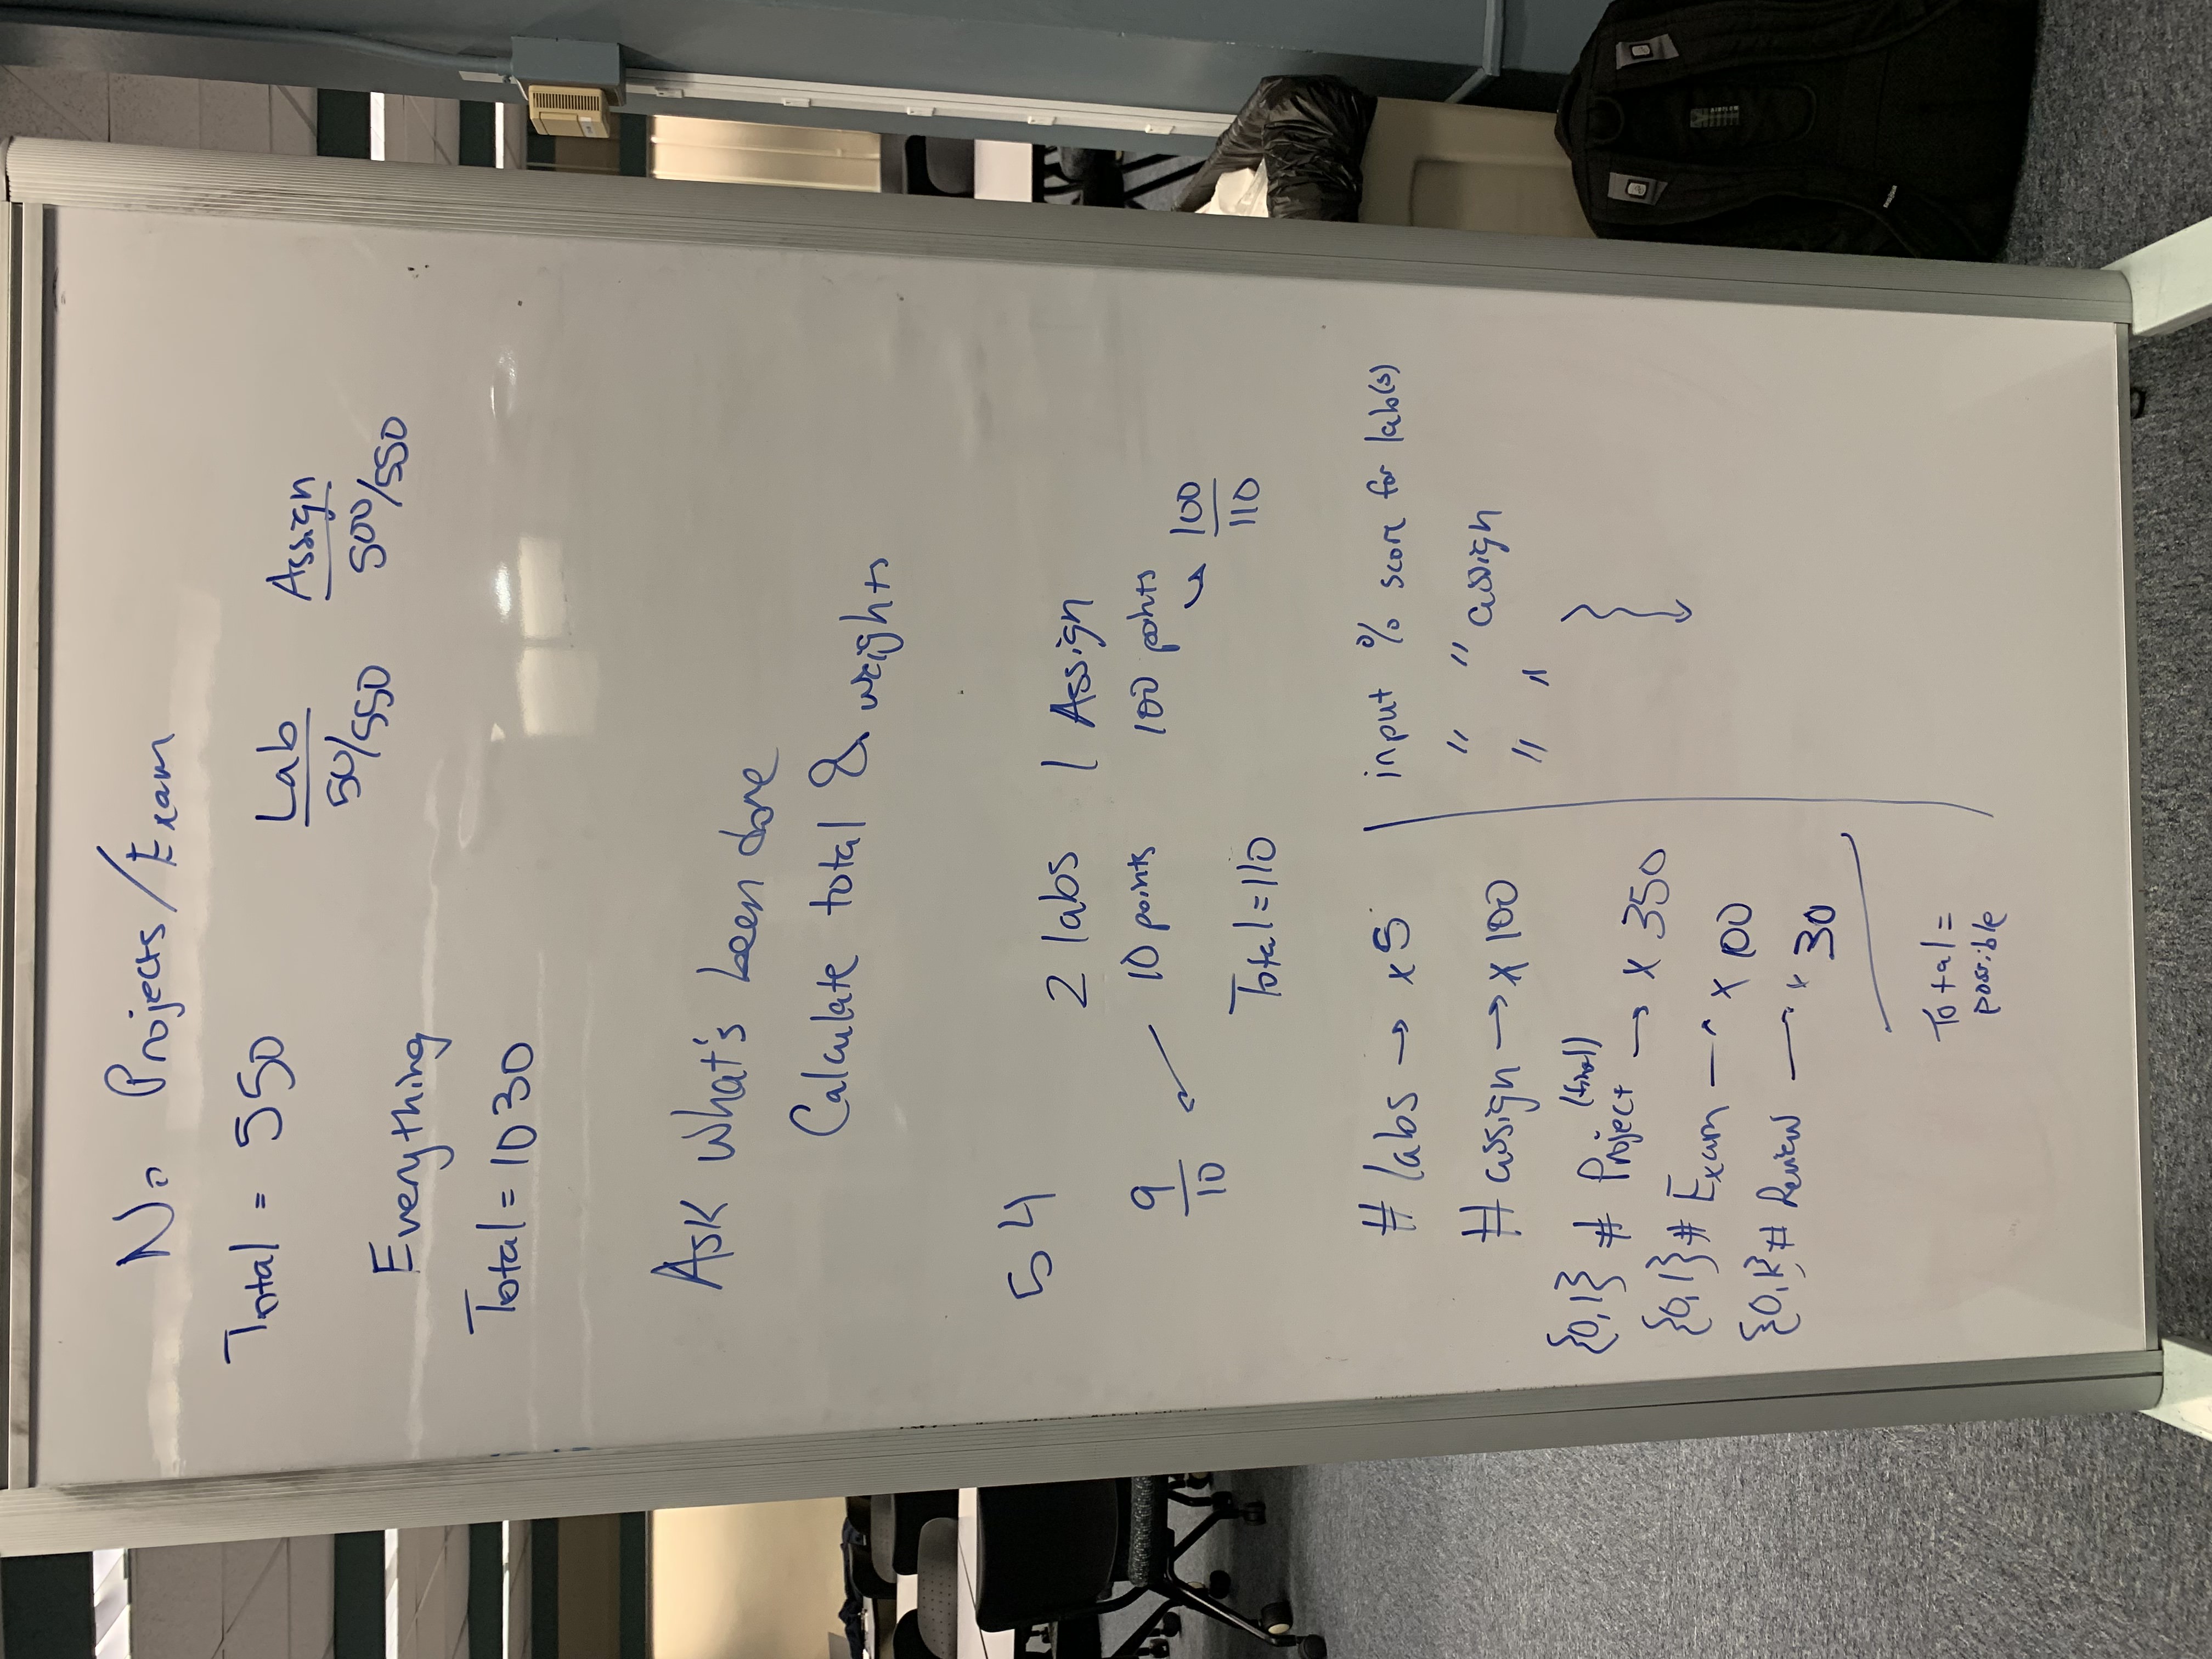 No Projects/Exam
Total = 550
Lab Assign
50/550 500/550
Everything
Total = 1030
Ask what's been done
Calculate total & weights
5 4 2 labs 1 Assign
9/10 10 points 100 points
100/110
Total = 110
# labs → x5 input % score for lab(s)
# assign → x 100 " " assign
{0,1} # Project (final) → x 350 " "
{0,1} # Exam → x 100
{0,1} # Review → x 30
Total =
possible